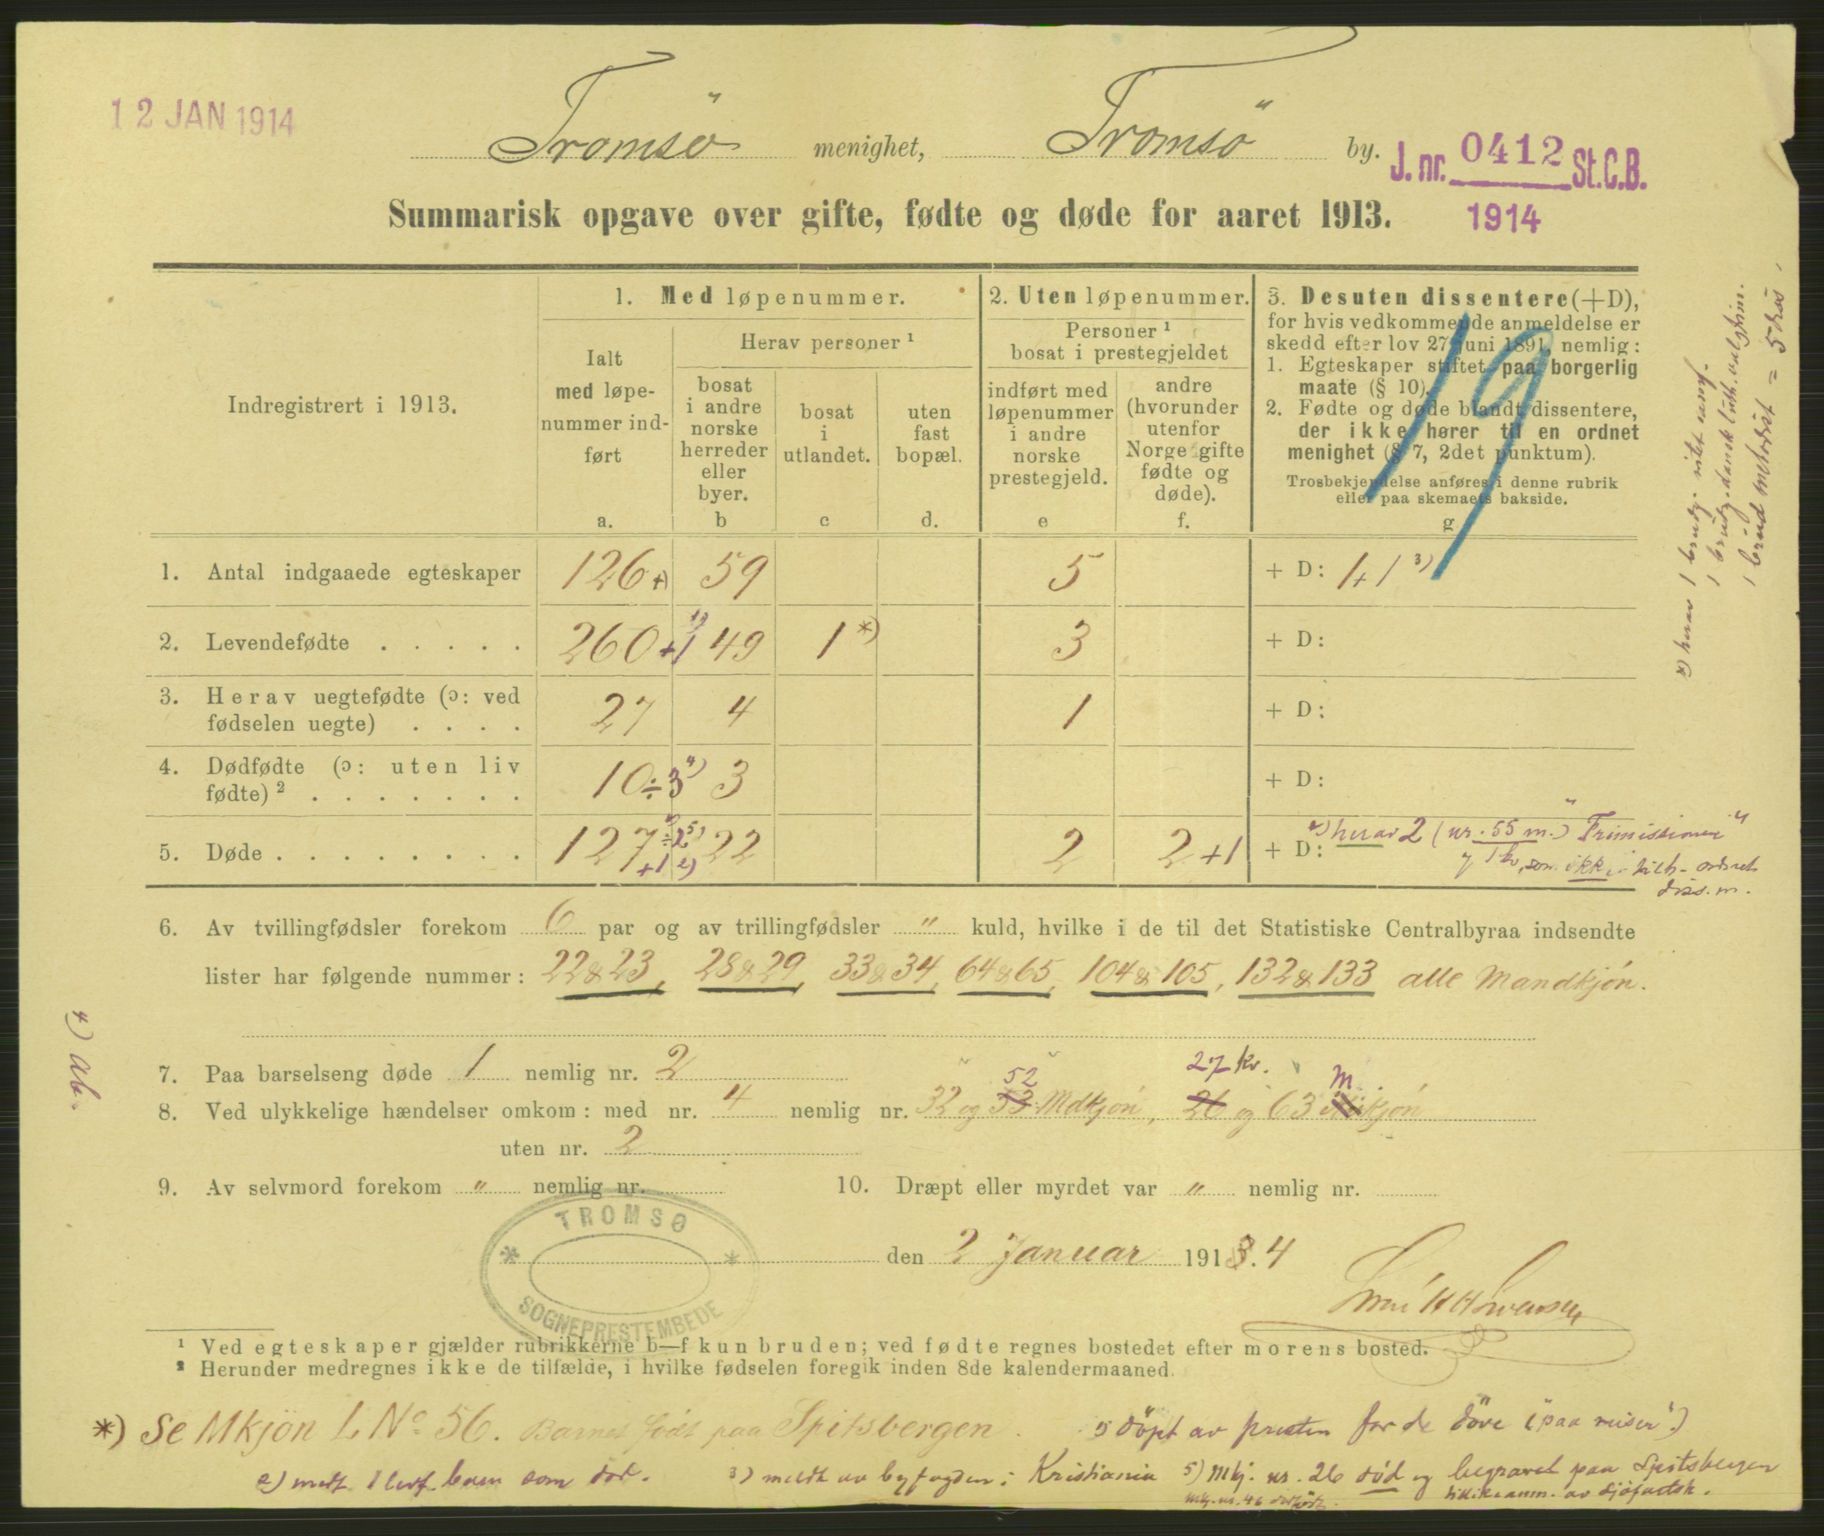 12 JAN 1914
Tromsö menighet, Tromsö by.
J. nr. 0412 St.C.B.
1914
Summarisk opgave over gifte, fødte og døde for aaret 1913.
Indregistrert i 1913.
1. Med løpenummer.
Ialt med løpe-nummer ind-ført
a.
Herav personer ¹
bosat i andre norske herreder eller byer.
b
bosat i utlandet.
c
uten fast bopæl.
d.
2. Uten løpenummer.
Personer ¹ bosat i prestegjeldet
indført med løpenummer i andre norske prestegjeld.
e
andre (hvorunder utenfor Norge gifte fødte og døde).
f.
3. Desuten dissentere (+D),
for hvis vedkommende anmeldelse er
skedd efter lov 27 juni 1891, nemlig:
1. Egteskaper stiftet paa borgerlig
maate (§ 10).
2. Fødte og døde blandt dissentere,
der ikke hører til en ordnet
menighet (§ 7, 2det punktum).
Trosbekjendelse anføres i denne rubrik
eller paa skemaets bakside.
g
19
1. Antal indgaaede egteskaper 126 +) 59 5 + D: 1+1 ³)
2. Levendefødte . . . . . 260 +1 49 1 *) 3 + D:
3. Herav uegtefødte (ɔ: ved
fødselen uegte) . . . . 27 4 1 + D:
4. Dødfødte (ɔ: uten liv
fødte) ² . . . . . . . 10 ÷3 ⁴) 3 + D:
5. Døde . . . . . . . . . 127 ÷2 ⁵) +1 ²) 22 2 2+1 + D: herav 2 (nr. 55 m.) "Frimissionen"
1 kv, som ikke ordnet
diss. m.
6. Av tvillingfødsler forekom 6 par og av trillingfødsler " kuld, hvilke i de til det Statistiske Centralbyraa indsendte
lister har følgende nummer: 22&23, 28&29, 33&34, 64&65, 104&105, 132&133 alle Mandkjön.
7. Paa barselseng døde 1 nemlig nr. 2
27 kv.
8. Ved ulykkelige hændelser omkom: med nr. 4 nemlig nr. 32 og 53 52 Mdkjön, 26 og 63 M kjön
uten nr. 2
9. Av selvmord forekom " nemlig nr.
10. Dræpt eller myrdet var " nemlig nr.
den 2 Januar 1913. 4
TROMSØ
* *
SOGNEPRESTEMBEDE
¹ Ved egteskaper gjælder rubrikkerne b—f kun bruden; ved fødte regnes bostedet efter morens bosted.
² Herunder medregnes ikke de tilfælde, i hvilke fødselen foregik inden 8de kalendermaaned.
*) Se Mkjön L No 56. Barnet födt paa Spitsbergen.
döpt av presten for de döve ("paa reiser".)
2) medt. 1 levf. barn som död.
3) meldt av byfogden i Kristiania
5) Mkj. nr. 26 död og begravet paa Spitsbergen
mkj. nr. 46 dødfödt.
4) ab.
x) herav 1 brudg.
1 brudg. dansk luth. valgkim.
1 brud metodist = 5 diss.